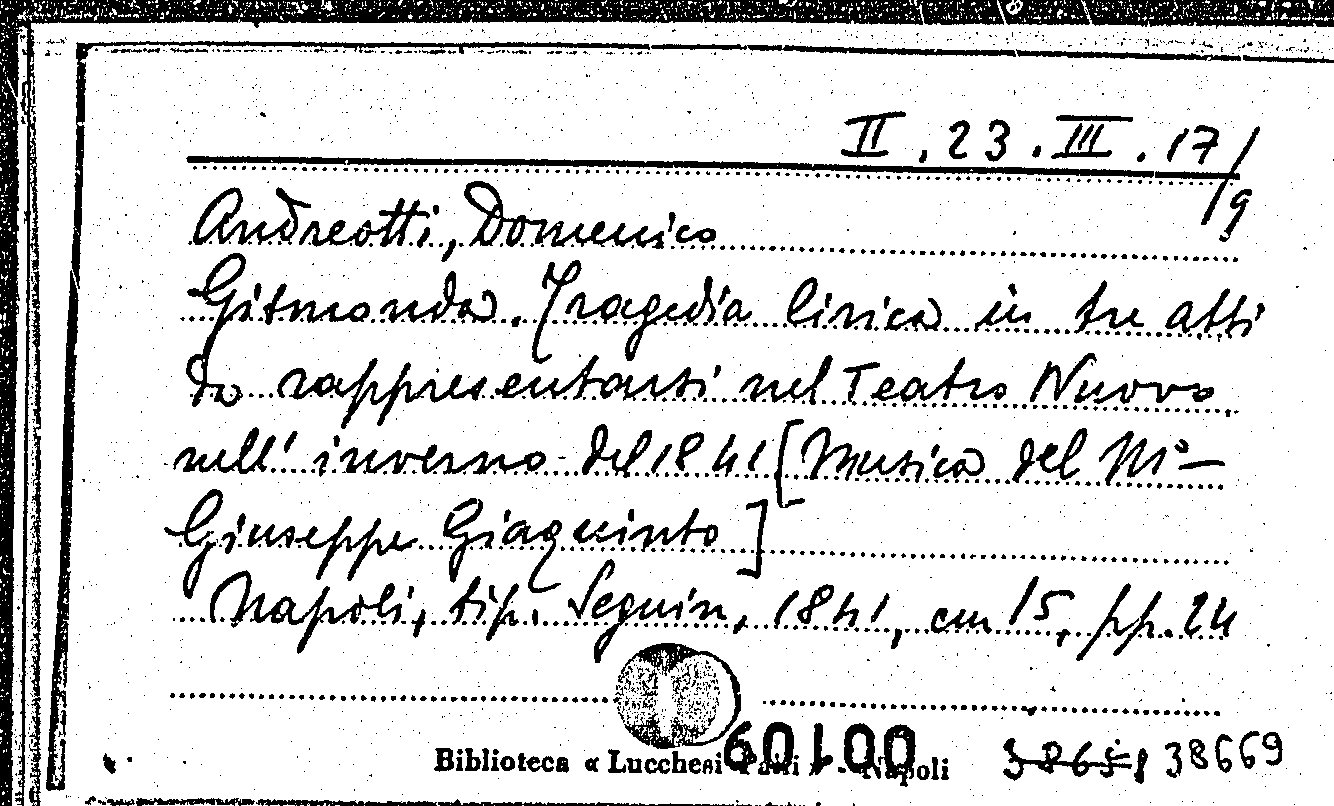 II . 23 . III . 17/
/9
Andreotti, Domenico
Gismonda. Tragedia lirica in tre atti
da rappresentarsi nel Teatro Nuovo
nell' inverno del 1841 [Musica del M°
Giuseppe Giaquinto]
Napoli, tip. Seguin, 1841, cm 15, pp. 24
Biblioteca « Lucchesi Palli » - Napoli
00109
38651 38669